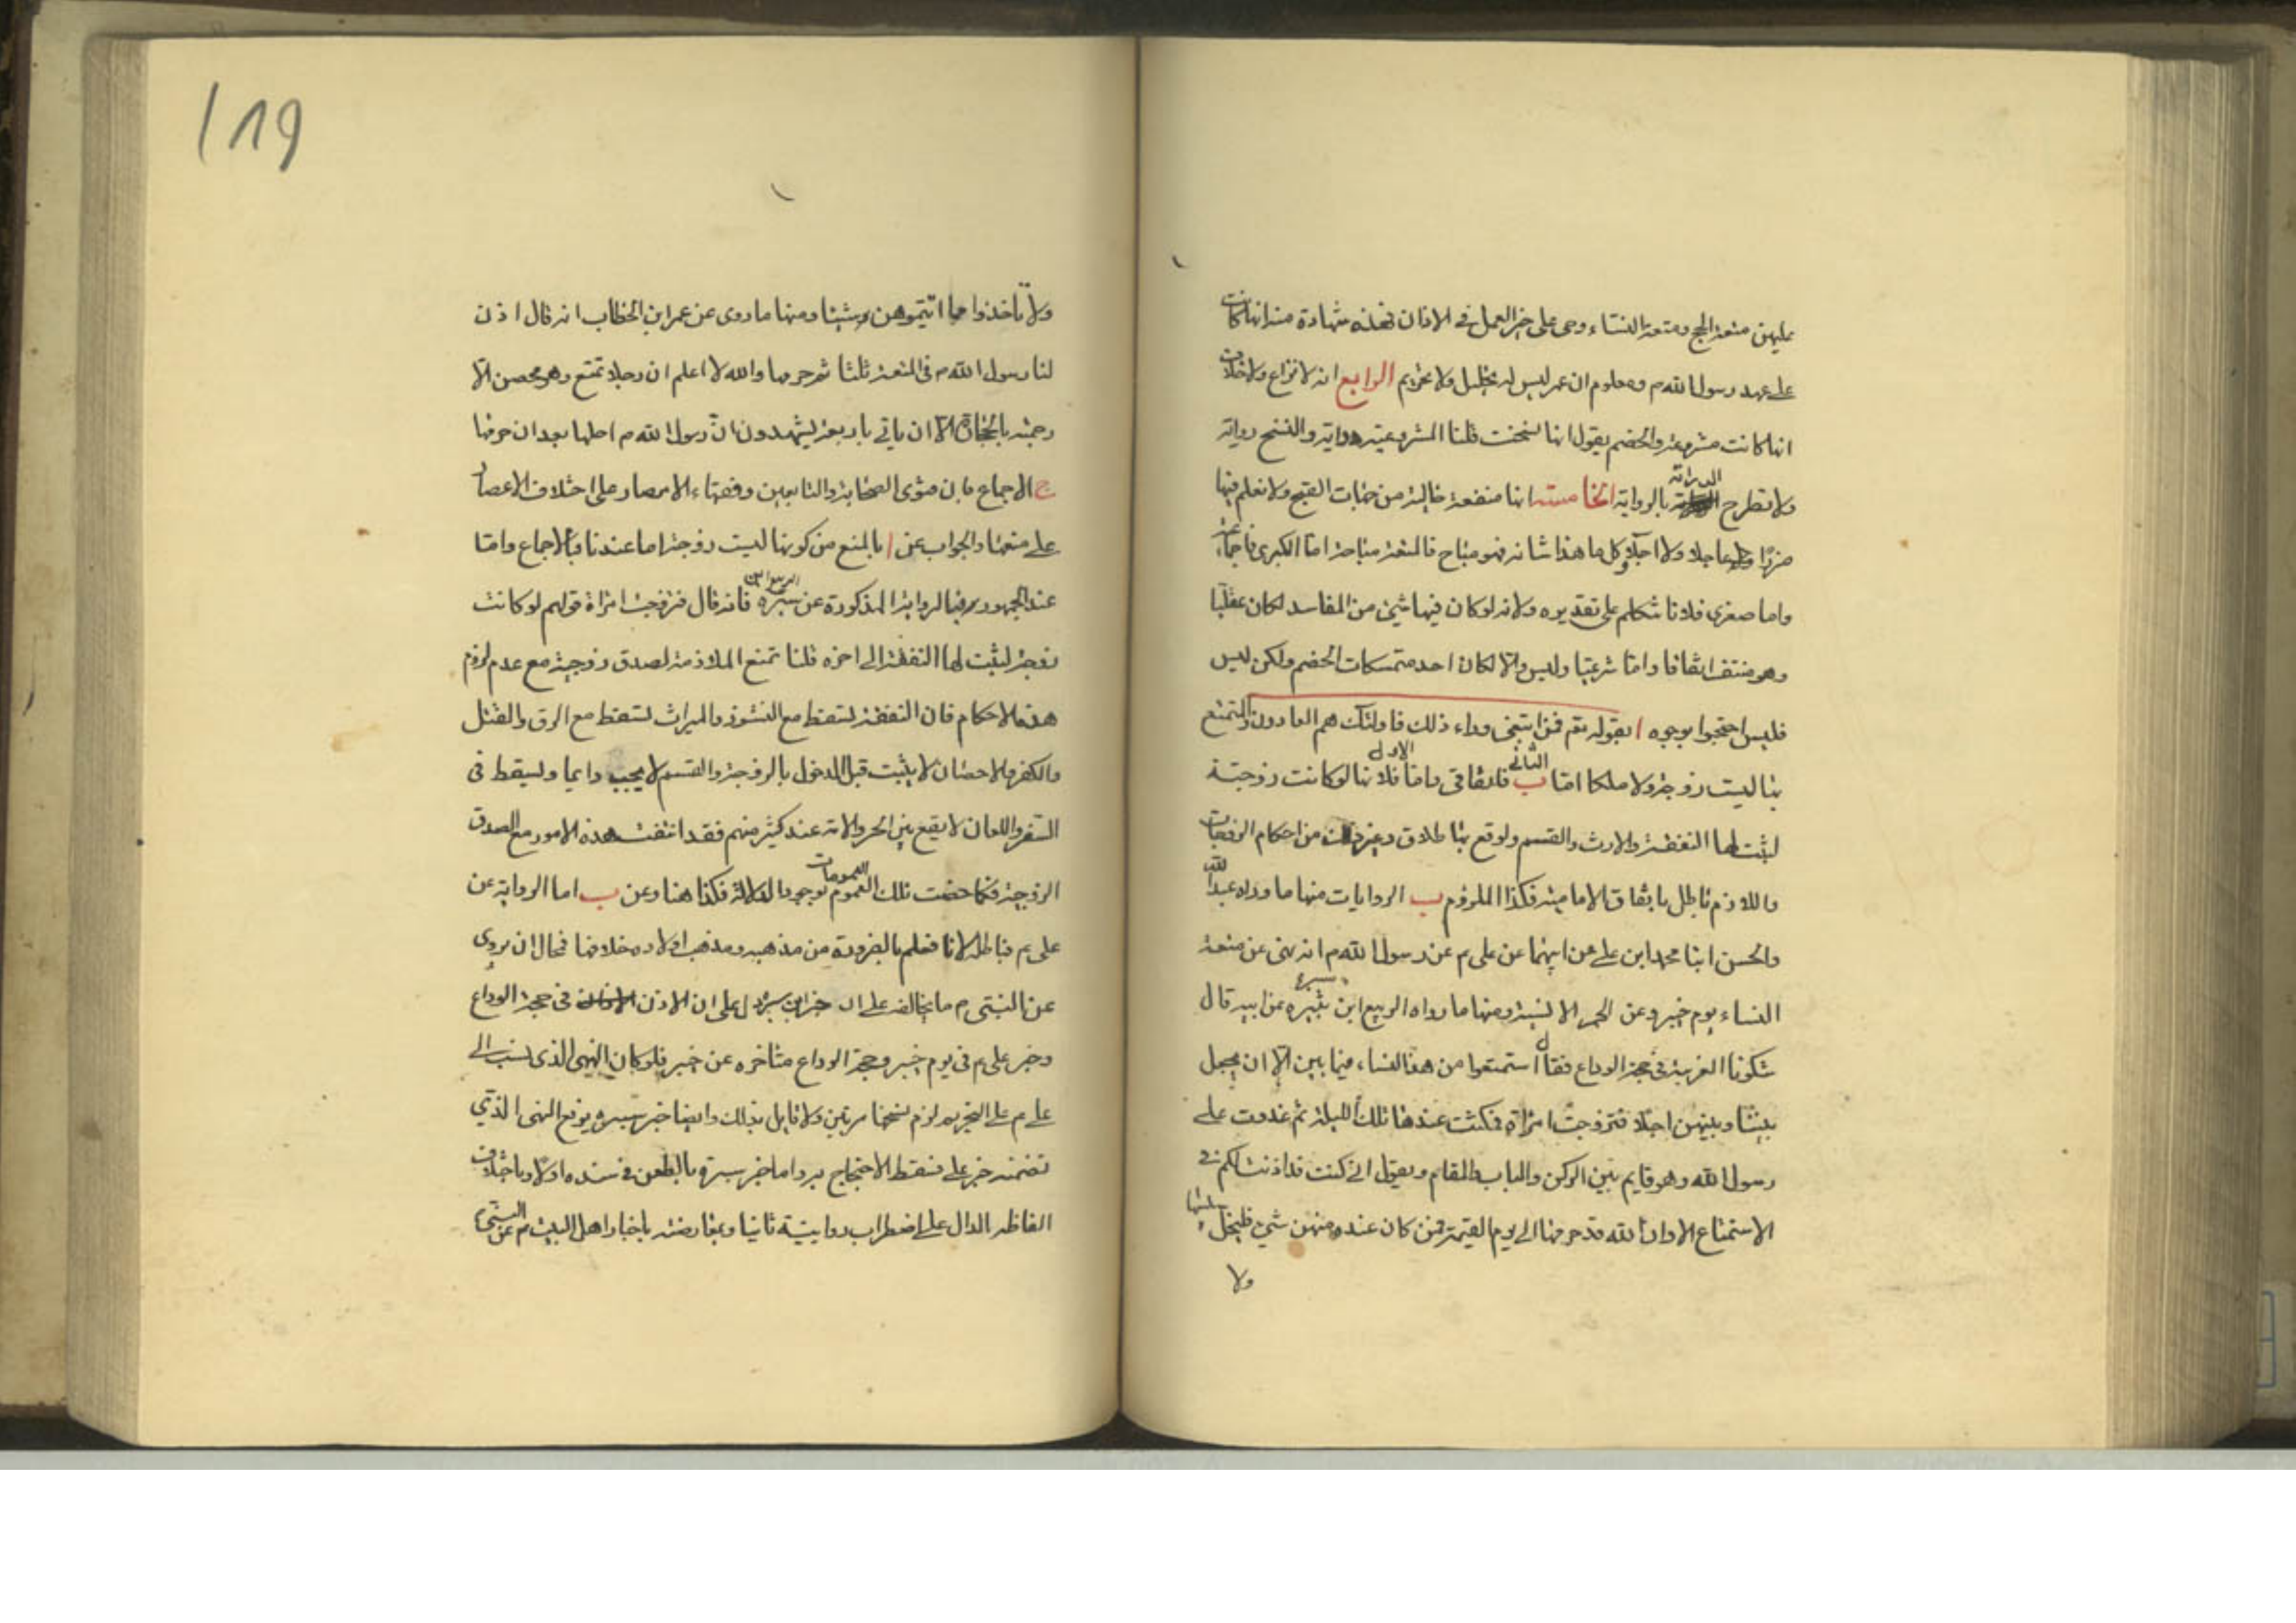 عليهن متعة الحج ومتعة النساء وحى على خير العمل فى الاذان فهذه شهادة منه انها كانت
على عهد رسول الله م ومعلوم ان عمر ليس له تحليل ولا تحريم الرابع انه لا نزاع ولا خلاف
انها كانت مشروعة والخصم يقول انها نسخت قلنا المشروعية دراية والنسخ رواية
ولا تطرح الدراية بالرواية الخامسة انها منفعة خالية من جهات القبح ولا نعلم فيها
ضررا عاجلا ولا آجلا وكل ما هذا شانه فهو مباح فالمتعة مباحة اما الكبرى فاجماعية
واما صغرى فلانا نتكلم على تقديره ولانه لو كان فيها شئ من المفاسد لكان عقليا
وهو منتف اتفاقا واما شرعيا وليس والا لكان احد متمسكات الخصم ولكن ليس
فليس احتجوا بوجوه ا بقوله تقم فمن ابتغى وراء ذلك فاولئك هم العادون والتمتع
بها ليست زوجة ولا ملكا اما الثانى ب فاتفاقى واما الاول فلانها لو كانت زوجة
لثبت لها النفقة والارث والقسم ولوقع بها طلاق وغير ذلك من احكام الزوجات
واللازم باطل باتفاق الامامية فكذا الملزوم ب الروايات منها ما رواه عبد الله
والحسن ابنا محمد ابن على عن ابيهما عن على م عن رسول الله م انه نهى عن متعة
النساء يوم خيبر وعن الحمر الانسية ومنها ما رواه الربيع ابن سبرة عن ابيه قال
شكونا العزبة فى حجة الوداع فقال استمتعوا من هذه النساء فيما بين الا ان يجعل
بيننا وبينهن اجلا فتزوجت امراة فمكثت عندها تلك الليلة ثم غدوت على
رسول الله وهو قايم بين الركن والباب والمقام ويقول انى كنت قد اذنت لكم فى
الاستمتاع الا وان الله قد حرمها الى يوم القيمة فمن كان عنده منهن شئ فليخل سبيلها
ولا
ولا تأخذوا مما اتيتموهن شيئا ومنها ما روى عن عمر ابن الخطاب انه قال اذن
لنا رسول الله م فى المتعة ثلثا ثم حرمها والله لا اعلم ان رجلا تمتع وهو محصن الا
رجمته بالحجارة الا ان ياتى باربعة يشهدون ان رسول الله م احلها بعد ان حرمها
ج الاجماع فان فتوى الصحابة والتابعين وفقهاء الامصار على اختلاف الاعصار
على منعها والجواب عن ا بالمنع من كونها ليست زوجة اما عندنا فبالاجماع واما
عند الجمهور فبالرواية المذكورة عن الربيع ابن سبرة فانه قال فتزوجت امراة قولهم لو كانت
زوجة لثبت لها النفقة الى اخره قلنا نمنع الملازمة لصدق زوجية مع عدم لزوم
هذه الاحكام فان النفقة تسقط مع النشوز والميراث تسقط مع الرق والقتل
والكفر والاحصان لا يثبت قبل الدخول بالزوجة والقسم لا يجب دايما ويسقط فى
السفر واللعان لا يقع بين الحر والامة عند كثير منهم فقد انتفت هذه الامور مع الصدق
الزوجية فكما خصت تلك العمومات لوجود الدلالة فكذا هنا وعن ب اما الرواية عن
على م فباطلة لانا نعلم بالضرورة من مذهبه ومذهب اولاده خلافها فحال ان يروى
عن النبى م ما يخالفه على ان خبر ابن سبرة دل على ان الاذن فى حجة الوداع
وخبر على م فى يوم خيبر وحجة الوداع متاخره عن خيبر فلو كان النهى الذى نسب الى
على م على التحريم لزم نسخها مرتين ولا قايل بذلك وايضا خبر سبرة يرفع النهى الذى
تضمنه خبر على فسقط الاحتجاج به واما خبر سبرة بالطعن فى سنده اولا وباختلاف
الفاظه الدال على اضطراب روايته ثانيا وبمعارضته باخبار اهل البيت م عن النبى م